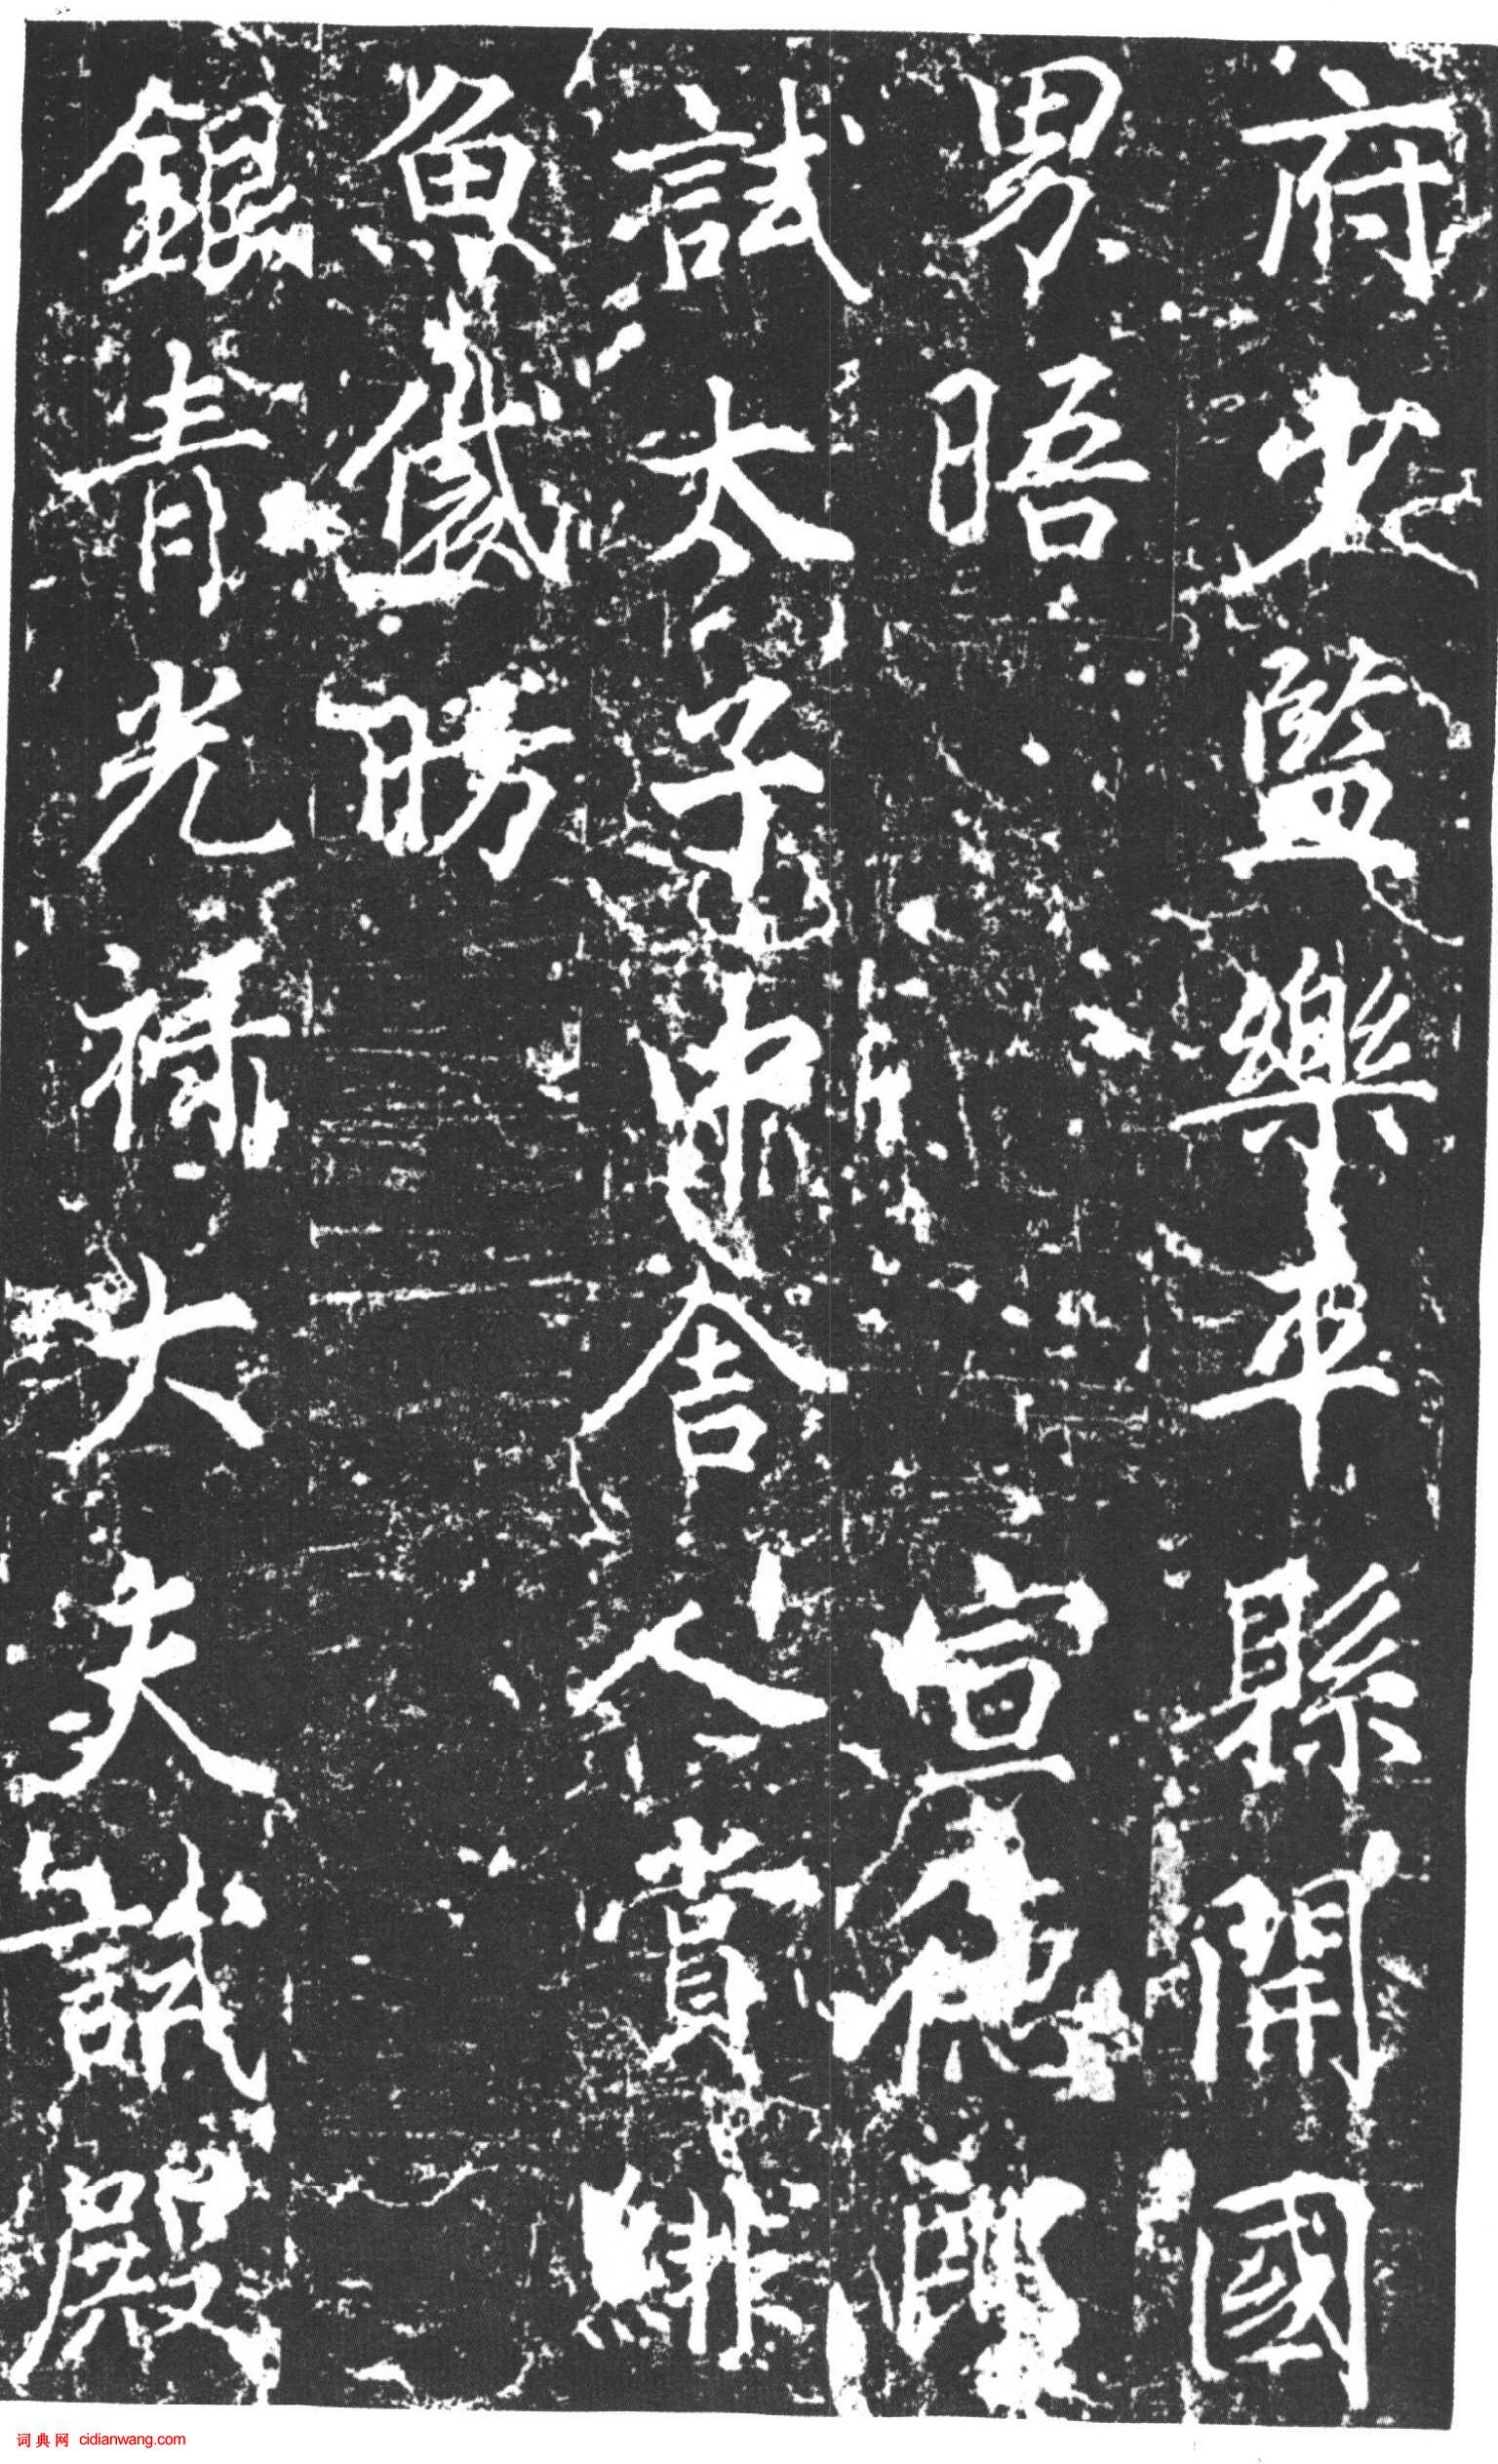 府少監樂平縣開國
男晤　宣德郎
試太子中舍人賞緋
魚袋昈
銀青光祿大夫試殿
词典网 cidianwang.com